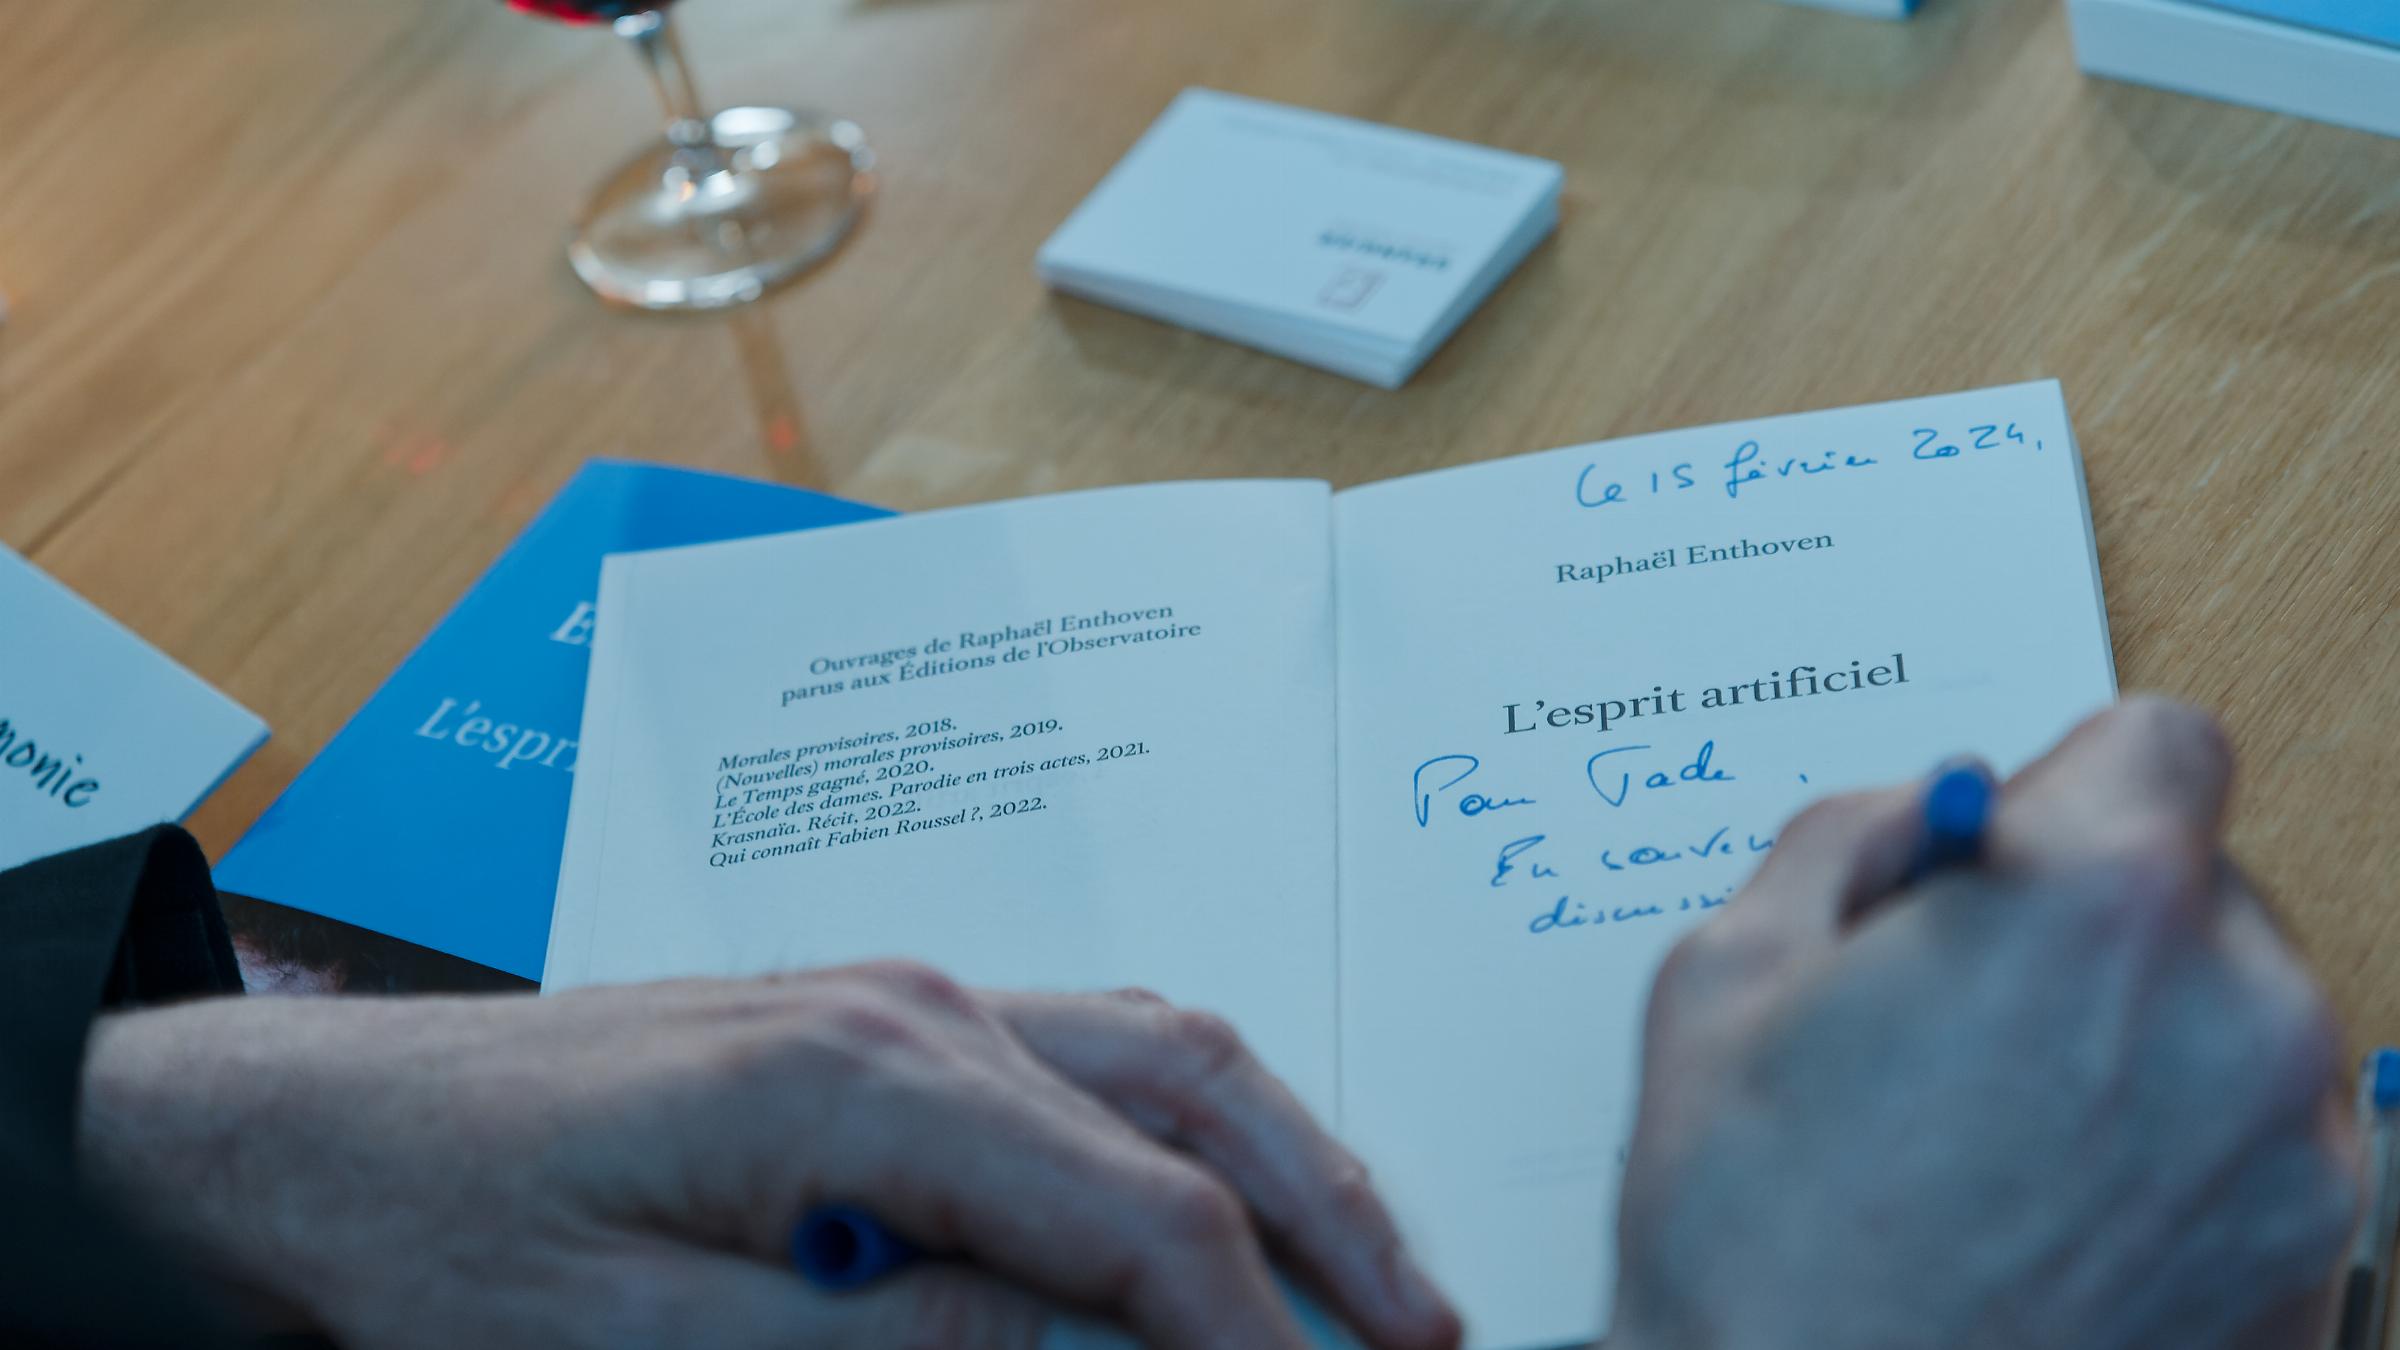 monie
L'espr
Ouvrages de Raphaël Enthoven
parus aux Éditions de l'Observatoire
Morales provisoires, 2018.
(Nouvelles) morales provisoires, 2019.
Le Temps gagné, 2020.
L'École des dames. Parodie en trois actes, 2021.
Krasnaïa. Récit, 2022.
Qui connaît Fabien Roussel ?, 2022.
Le 15 février 2024,
Raphaël Enthoven
L'esprit artificiel
Pour Jade,
En souven
discussi